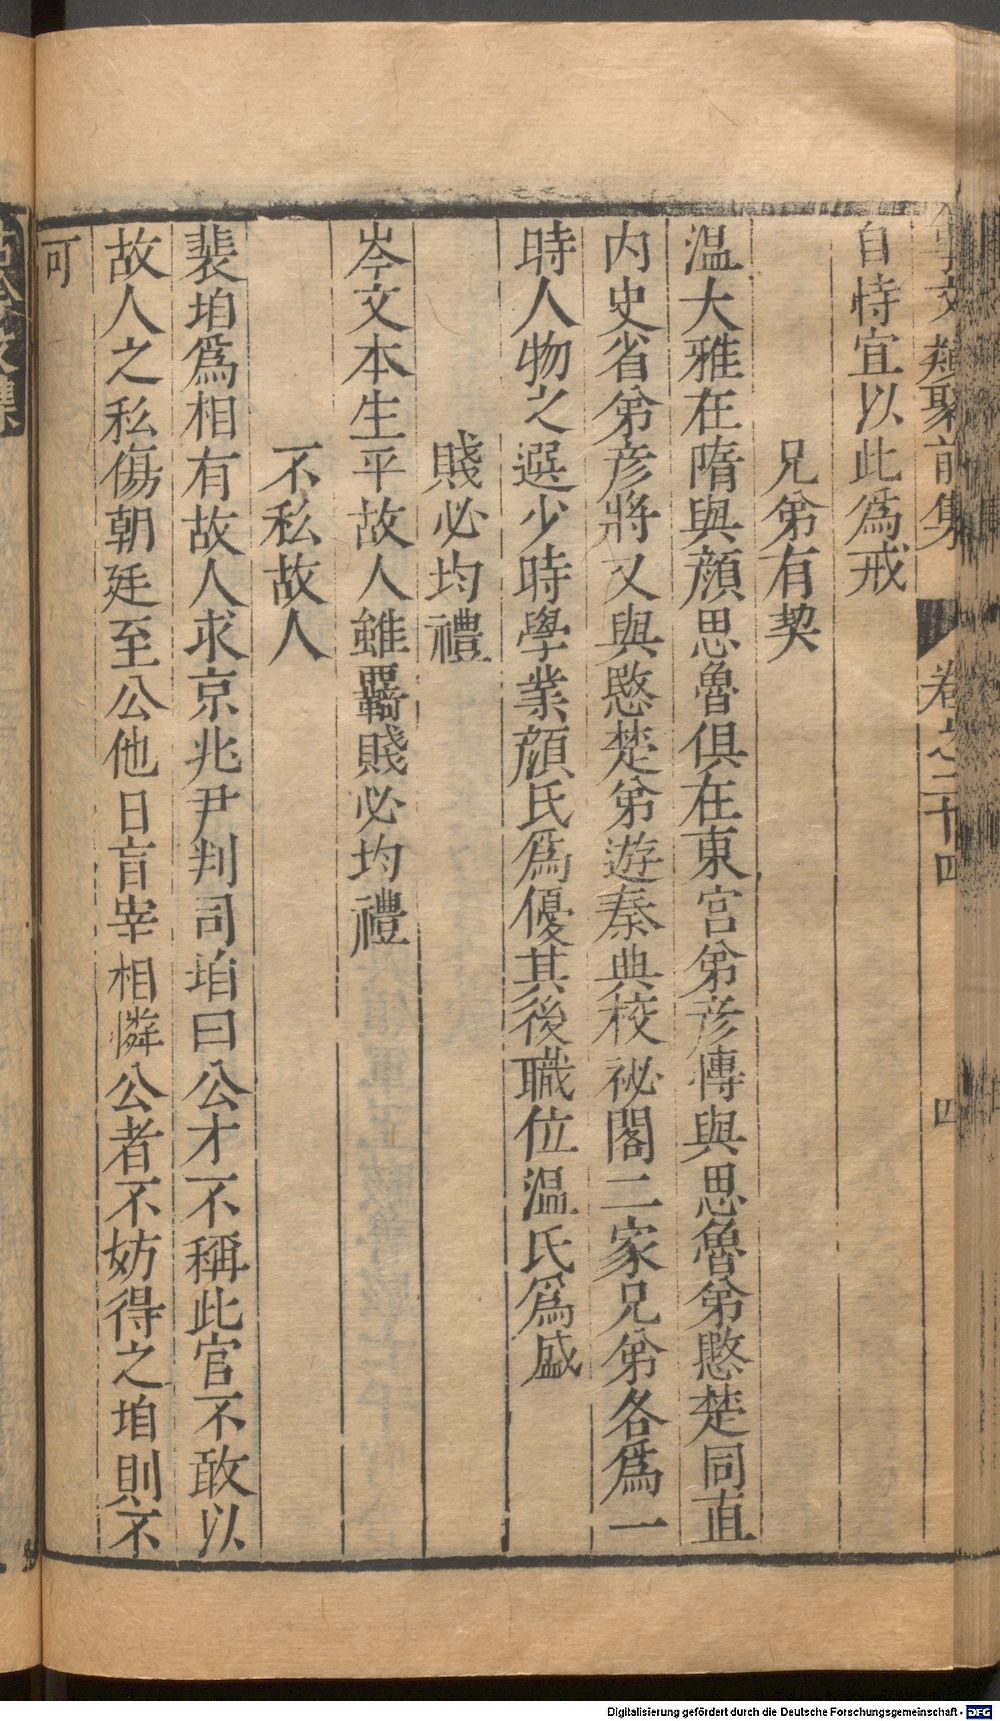 事文類聚前集 卷之二十四 四
自恃宜以此爲戒
兄弟有契
溫大雅在隋與顔思魯俱在東宮弟彦博與思魯弟愍楚同直
内史省弟彦將又與愍楚弟遊秦典校祕閣二家兄弟各爲一
時人物之選少時學業顔氏爲優其後職位溫氏爲盛
賤必均禮
岑文本生平故人雖羇賤必均禮
不私故人
裴垍爲相有故人求京兆尹判司垍曰公才不稱此官不敢以
故人之私傷朝廷至公他日盲宰相憐公者不妨得之垍則不
可
Digitalisierung gefördert durch die Deutsche Forschungsgemeinschaft - DFG